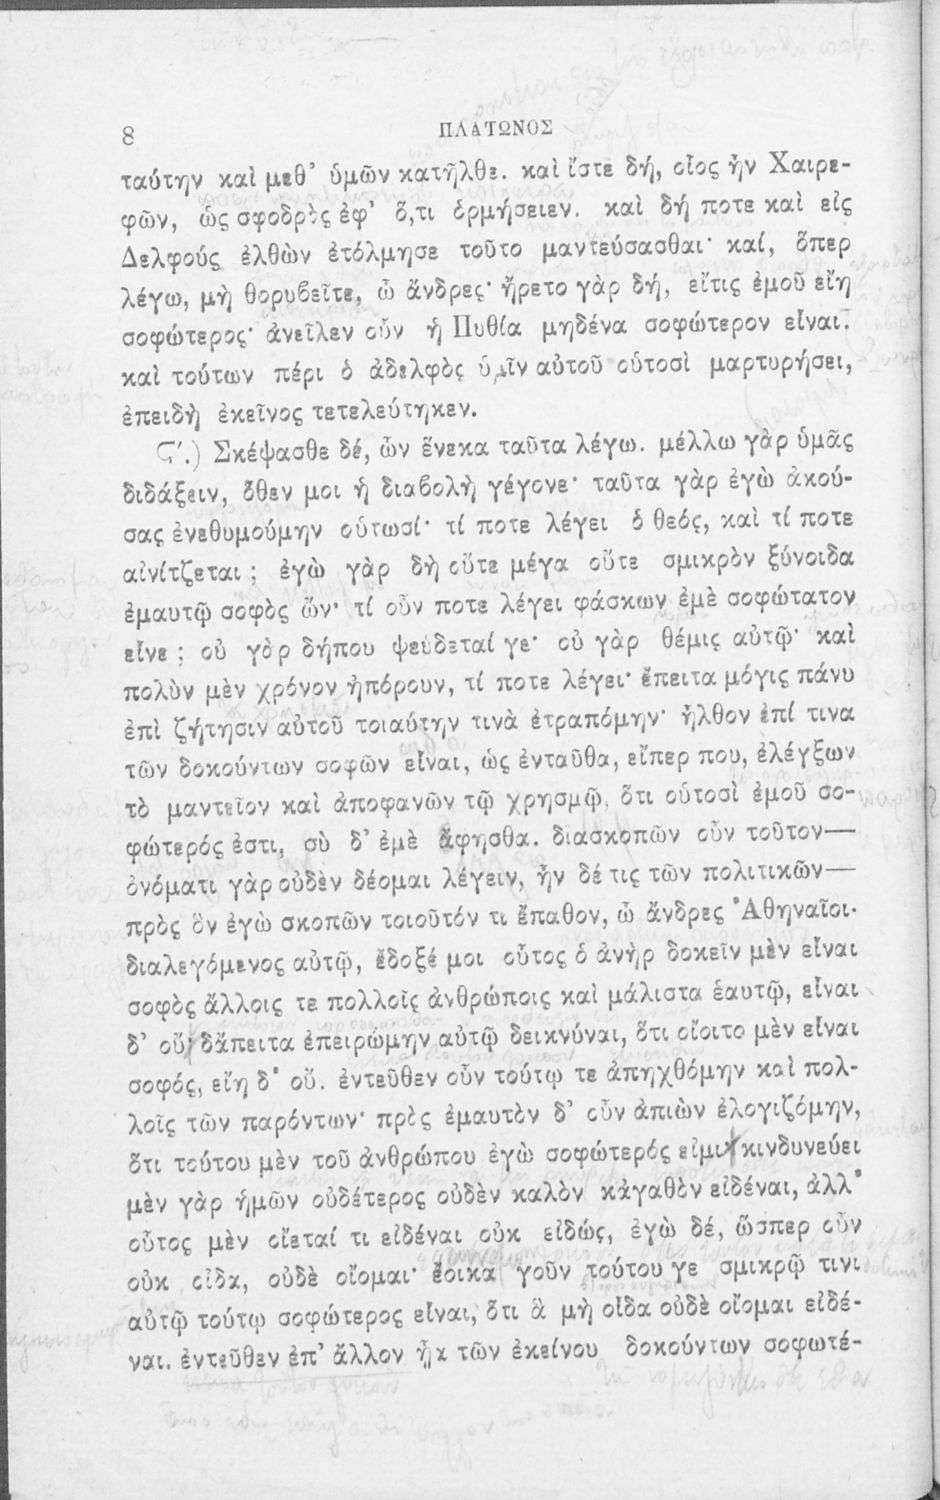 8
ΠΛΑΤΩΝΟΣ
ταύτην καὶ μεθ' ὑμῶν κατῆλθε. καὶ ἴστε δή, οἷος ἦν Χαιρε-
φῶν, ὡς σφοδρὸς ἐφ' ὅ,τι ὁρμήσειεν. καὶ δή ποτε καὶ εἰς
Δελφούς ἐλθὼν ἐτόλμησε τοῦτο μαντεύσασθαι· καί, ὅπερ
λέγω, μὴ θορυβεῖτε, ὦ ἄνδρες· ἤρετο γὰρ δή, εἴτις ἐμοῦ εἴη
σοφώτερος· ἀνεῖλεν οὖν ἡ Πυθία μηδένα σοφώτερον εἶναι.
καὶ τούτων πέρι ὁ ἀδελφὸς ὑμῖν αὐτοῦ οὑτοσὶ μαρτυρήσει,
ἐπειδὴ ἐκεῖνος τετελεύτηκεν.
Ϛ'.) Σκέψασθε δέ, ὧν ἕνεκα ταῦτα λέγω. μέλλω γὰρ ὑμᾶς
διδάξειν, ὅθεν μοι ἡ διαβολὴ γέγονε· ταῦτα γὰρ ἐγὼ ἀκού-
σας ἐνεθυμούμην οὑτωσί· τί ποτε λέγει ὁ θεός, καὶ τί ποτε
αἰνίτζεται ; ἐγὼ γὰρ δὴ οὔτε μέγα οὔτε σμικρὸν ξύνοιδα
ἐμαυτῷ σοφὸς ὤν· τί οὖν ποτε λέγει φάσκων ἐμὲ σοφώτατον
εἶνε ; οὐ γὰρ δήπου ψεύδεταί γε· οὐ γὰρ θέμις αὐτῷ· καὶ
πολὺν μὲν χρόνον ἠπόρουν, τί ποτε λέγει· ἔπειτα μόγις πάνυ
ἐπὶ ζήτησιν αὐτοῦ τοιαύτην τινὰ ἐτραπόμην· ἦλθον ἐπί τινα
τῶν δοκούντων σοφῶν εἶναι, ὡς ἐνταῦθα, εἴπερ που, ἐλέγξων
τὸ μαντεῖον καὶ ἀποφανῶν τῷ χρησμῷ, ὅτι οὑτοσὶ ἐμοῦ σο-
φώτερός ἐστι, σὺ δ' ἐμὲ ἄφησθα. διασκοπῶν οὖν τοῦτον—
ὀνόματι γὰρ οὐδὲν δέομαι λέγειν, ἦν δέ τις τῶν πολιτικῶν—
πρὸς ὃν ἐγὼ σκοπῶν τοιοῦτόν τι ἔπαθον, ὦ ἄνδρες Ἀθηναῖοι·
διαλεγόμενος αὐτῷ, ἔδοξέ μοι οὗτος ὁ ἀνὴρ δοκεῖν μὲν εἶναι
σοφὸς ἄλλοις τε πολλοῖς ἀνθρώποις καὶ μάλιστα ἑαυτῷ, εἶναι
δ' οὔ· δἄπειτα ἐπειρώμην αὐτῷ δεικνύναι, ὅτι οἴοιτο μὲν εἶναι
σοφός, εἴη δ' οὔ. ἐντεῦθεν οὖν τούτῳ τε ἀπηχθόμην καὶ πολ-
λοῖς τῶν παρόντων· πρὸς ἐμαυτὸν δ' οὖν ἀπιὼν ἐλογιζόμην,
ὅτι τούτου μὲν τοῦ ἀνθρώπου ἐγὼ σοφώτερός εἰμι· κινδυνεύει
μὲν γὰρ ἡμῶν οὐδέτερος οὐδὲν καλὸν κἀγαθὸν εἰδέναι, ἀλλ'
οὗτος μὲν οἴεταί τι εἰδέναι οὐκ εἰδώς, ἐγὼ δέ, ὥσπερ οὖν
οὐκ οἶδα, οὐδὲ οἴομαι· ἔοικα γοῦν τούτου γε σμικρῷ τινι
αὐτῷ τούτῳ σοφώτερος εἶναι, ὅτι ἃ μὴ οἶδα οὐδὲ οἴομαι εἰδέ-
ναι. ἐντεῦθεν ἐπ' ἄλλον ᾖα τῶν ἐκείνου δοκούντων σοφωτέ-